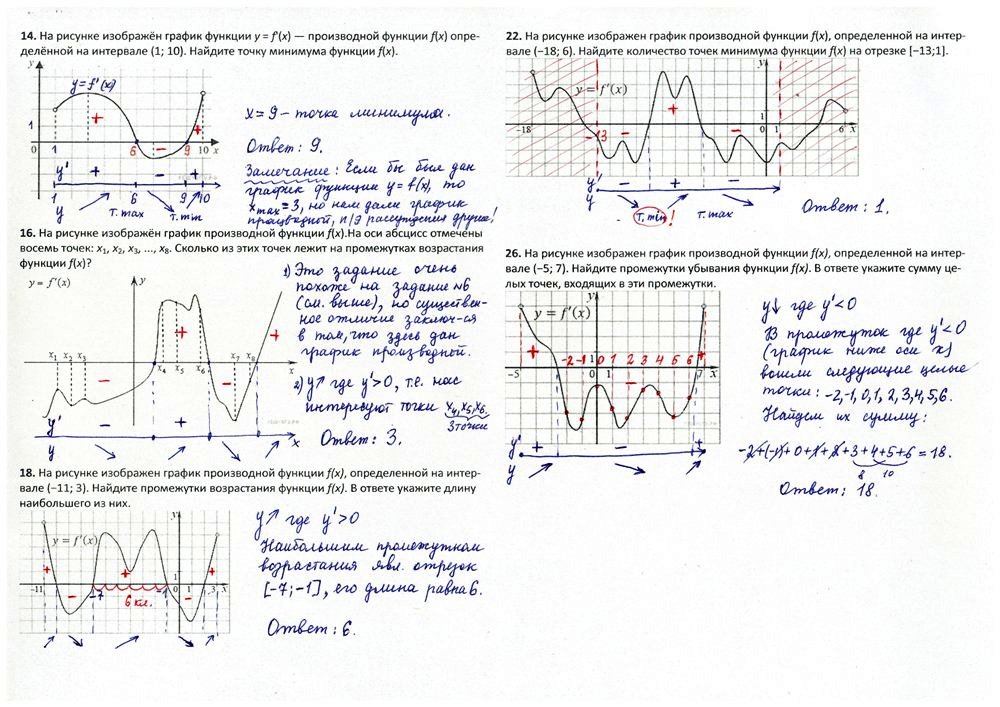 14. На рисунке изображён график функции y = f'(x) — производной функции f(x) опре-
делённой на интервале (1; 10). Найдите точку минимума функции f(x).
y
y=f'(x)
+
+
1
−
0
1
6
9
10
x
y'
+
−
+
1
6
9
10
y
т. max
т. min
x=9 – точка минимума.
Ответ: 9.
Замечание: Если бы был дан
график функции y=f(x), то
xmax=3, но нам дали график
производной, п/э рассуждения другие!
16. На рисунке изображён график производной функции f(x).На оси абсцисс отмечены
восемь точек: x1, x2, x3, ..., x8. Сколько из этих точек лежит на промежутках возрастания
функции f(x)?
y = f'(x)
y
+
+
x1
x2
x3
x4
x5
x6
x7
x8
−
−
y'
−
+
y
x
1) Это задание очень
похоже на задание №6
(см. выше), но существен-
ное отличие заключ-ся
в том, что здесь дан
график производной.
2) y↗ где y'>0, т.е. нас
интересуют точки x4,x5,x6
3 точки
Ответ: 3.
18. На рисунке изображен график производной функции f(x), определенной на интер-
вале (−11; 3). Найдите промежутки возрастания функции f(x). В ответе укажите длину
наибольшего из них.
y
y = f'(x)
+
+
+
1
-11
−
-7
6 кл.
-1
0
1
−
3
x
y↗ где y'>0
Наибольшим промежутком
возрастания явл. отрезок
[-7;-1], его длина равна 6.
Ответ: 6.
22. На рисунке изображен график производной функции f(x), определенной на интер-
вале (−18; 6). Найдите количество точек минимума функции f(x) на отрезке [−13;1].
y
y = f'(x)
+
1
-18
-13
−
−
0
1
6
x
y'
−
+
−
y
т. min!
т. max
Ответ: 1.
26. На рисунке изображен график производной функции f(x), определенной на интер-
вале (−5; 7). Найдите промежутки убывания функции f(x). В ответе укажите сумму це-
лых точек, входящих в эти промежутки.
y
y = f'(x)
+
-2 -1 0 1 2 3 4 5 6
+
-5
−
7
x
0
1
y'
+
−
+
y
y↓ где y'<0
В промежуток где y'<0
(график ниже оси x)
вошли следующие целые
точки: -2,-1,0,1,2,3,4,5,6.
Найдем их сумму:
-2+(-1)+0+1+2+3+4+5+6=18.
8
10
Ответ: 18.